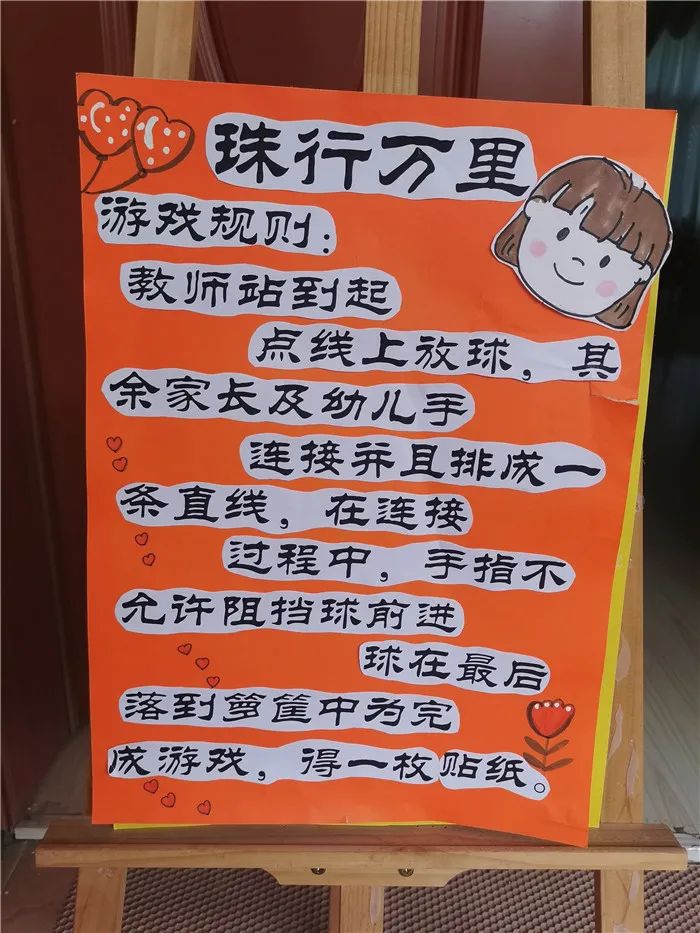 珠行万里
游戏规则：
教师站到起
点线上放球，其
余家长及幼儿手
连接并且排成一
条直线，在连接
过程中，手指不
允许阻挡球前进
球在最后
落到箩筐中为完
成游戏，得一枚贴纸。